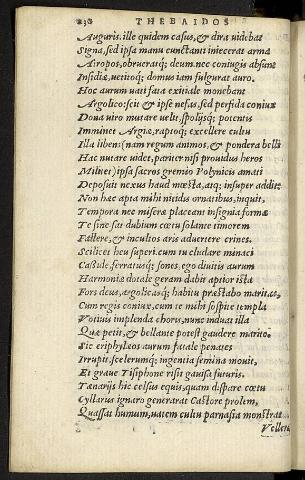 230 THEBAIDOS
Auguris. ille quidem casus, & dira uidebat
Signa, sed ipsa manu cunctanti iniecerat arma
Atropos, obruerátq; deum. nec coniugis absunt
Insidiæ, uetitoq; domus iam fulgurat auro.
Hoc aurum uati fata exitiale monebant
Argolico: scit & ipse nefas, sed perfida coniux
Dona uiro mutare uelit, spolijsq; potentis
Imminet Argiæ, raptoq; excellere cultu
Illa libens (nam regum animos, & pondera belli
Hac nutare uidet, pariter nisi prouidus heros
Militet) ipsa sacros gremio Polynicis amati
Deposuit nexus haud mœsta, atq; insuper addit:
Non hæc apta mihi nitidis ornatibus, inquit,
Tempora nec miseræ placeant insignia formæ
Te sine sat dubium cœtu solante timorem
Fallere, & incultos aris aduertere crines.
Scilicet heu superi. cum tu cludare minaci
Casside, ferratusq; sones, ego diuitis aurum
Harmoniæ dotale geram dabit aptior ista
Fors deus, argolicasq; habitu præstabo maritas,
Cum regis coniux, cum te mihi sospite templa
Votiuis implenda choris, nunc induat illa
Quæ petit, & bellante potest gaudere marito.
Sic eriphyleos aurum fatale penates
Irrupit, scelerumq; ingentia semina mouit,
Et graue Tisiphone risit gauisa futuris.
Tænarijs hic celsus equis, quam dispare cœtu
Cyllarus ignaro generarat Castore prolem,
Quassat humum, uatem cultu parnasia monstrat
Veller